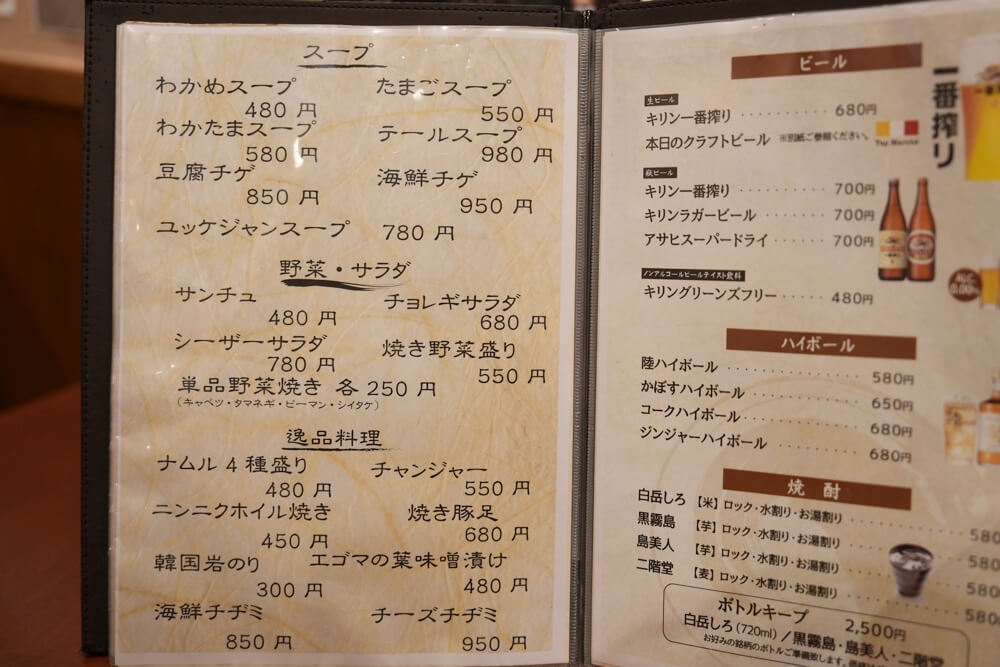 スープ
わかめスープ
480 円
たまごスープ
550 円
わかたまスープ
580 円
テールスープ
980 円
豆腐チゲ
850 円
海鮮チゲ
950 円
ユッケジャンスープ 780 円
野菜・サラダ
サンチュ
480 円
チョレギサラダ
680 円
シーザーサラダ
780 円
焼き野菜盛り
550 円
単品野菜焼き 各 250 円
（キャベツ・タマネギ・ピーマン・シイタケ）
逸品料理
ナムル 4 種盛り
480 円
チャンジャー
550 円
ニンニクホイル焼き
450 円
焼き豚足
680 円
韓国岩のり
300 円
エゴマの葉味噌漬け
480 円
海鮮チヂミ
850 円
チーズチヂミ
950 円
ビール
生ビール
キリン一番搾り 680円
本日のクラフトビール ※別紙ご参照ください。
Tap Marché
一番搾り
瓶ビール
キリン一番搾り 700円
キリンラガービール 700円
アサヒスーパードライ 700円
ノンアルコールビールテイスト飲料
キリングリーンズフリー 480円
ALC. 0.00%
ハイボール
陸ハイボール 580円
かぼすハイボール 650円
コークハイボール 680円
ジンジャーハイボール 680円
焼 酎
白岳しろ 【米】ロック・水割り・お湯割り 580
黒霧島 【芋】ロック・水割り・お湯割り 580
島美人 【芋】ロック・水割り・お湯割り 580
二階堂 【麦】ロック・水割り・お湯割り 580
ボトルキープ 2,500円
白岳しろ (720ml) / 黒霧島・島美人・二階堂
お好みの銘柄のボトルご準備致します。